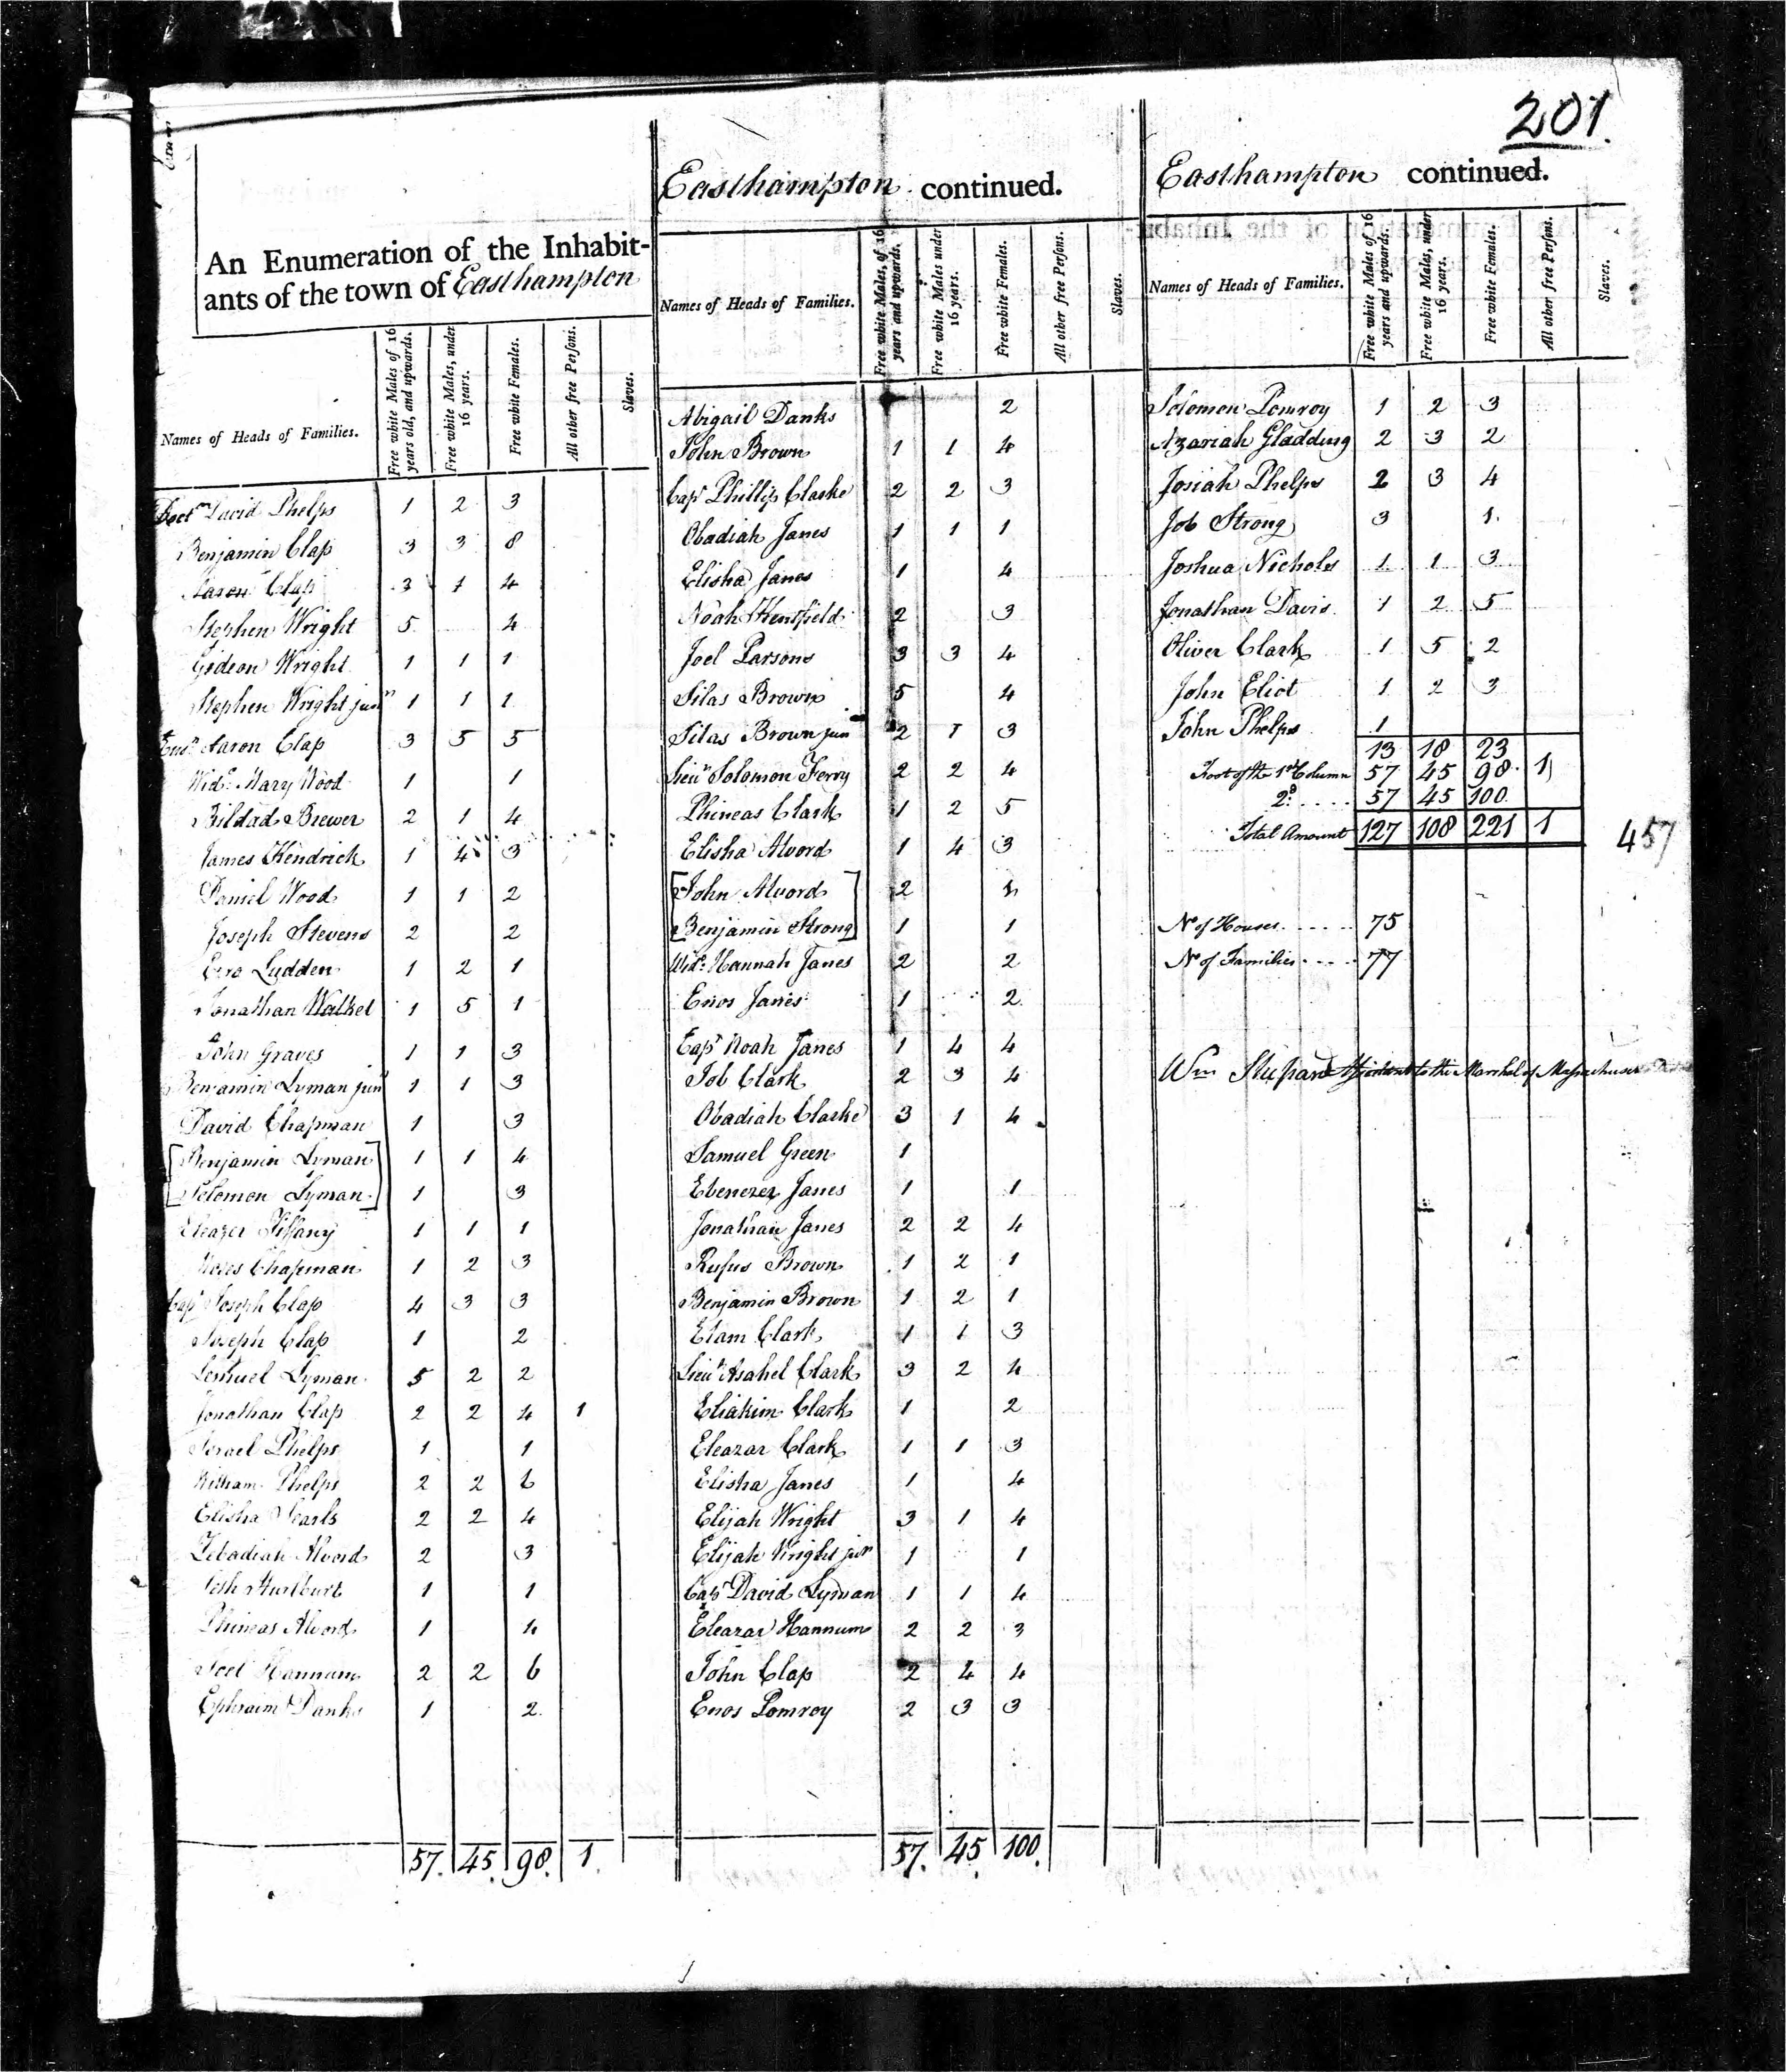 201.
An Enumeration of the Inhabit-
ants of the town of Easthampton
Names of Heads of Families.
Free white Males of 16 years old, and upwards.
Free white Males, under 16 years.
Free white Females.
All other free Persons.
Slaves.
Doctr David Phelps 1 2 3
Benjamin Clap 3 3 8
Aaron Clap 3 1 4
Stephen Wright 5 4
Gideon Wright 1 1 1
Stephen Wright junr 1 1 1
Aaron Clap 3 5 5
Widw Mary Wood 1 1
Bildad Brewer 2 1 4
James Hendrick 1 4 3
Daniel Wood 1 1 2
Joseph Stevens 2 2
Ezra Ludden 1 2 1
Jonathan Walkel 1 5 1
John Graves 1 1 3
Benjamin Lyman junr 1 1 3
David Chapman 1 3
[Benjamin Lyman] 1 1 4
[Solomon Lyman] 1 3
Eleazer Tiffany 1 1 1
Chapman 1 2 3
Capt Joseph Clap 4 3 3
Joseph Clap 1 2
Lemuel Lyman 5 2 2
Jonathan Clap 2 2 4 1
Israel Phelps 1 1
William Phelps 2 2 6
Elisha Searls 2 2 4
Zebadiah Alvord 2 3
Hurlburt 1 1
Phineas Alvord 1 4
Joel Hannum 2 2 6
Ephraim Danks 1 2
57. 45. 98. 1.
Easthampton continued.
Names of Heads of Families.
Free white Males, of 16 years and upwards.
Free white Males under 16 years.
Free white Females.
All other free Persons.
Slaves.
Abigail Danks 2
John Brown 1 1 4
Capt Phillip Clarke 2 2 3
Obadiah Janes 1 1 1
Elisha Janes 1 4
Noah Hentfield 2 3
Joel Parsons 3 3 4
Silas Brown 5 4
Silas Brown jun 2 1 3
Lieut Solomon Ferry 2 2 4
Phineas Clark 1 2 5
Elisha Alvord 1 4 3
[John Alvord] 2
[Benjamin Strong] 1 1
Wido Hannah Janes 2 2
Enos Janes 1 2
Capt Noah Janes 1 4 4
Job Clark 2 3 4
Obadiah Clarke 3 1 4
Samuel Green 1
Ebenezer Janes 1 1
Jonathan Janes 2 2 4
Rufus Brown 1 2 1
Benjamin Brown 1 2 1
Elam Clark 1 1 3
Lieut Asahel Clark 3 2 4
Eliakim Clark 1 2
Eleazar Clark 1 1 3
Elisha Janes 1 4
Elijah Wright 3 1 4
Elijah Wright junr 1 1
Capt David Lyman 1 1 4
Eleazar Hannum 2 2 3
John Clap 2 4 4
Enos Pomroy 2 3 3
57. 45. 100.
Easthampton continued.
Names of Heads of Families.
Free white Males of 16 years and upwards.
Free white Males, under 16 years.
Free white Females.
All other free Persons.
Slaves.
Solomon Pomroy 1 2 3
Azariah Gladding 2 3 2
Josiah Phelps 2 3 4
Job Strong 3 1.
Joshua Nichols 1 1 3
Jonathan Davis 1 2 5
Oliver Clark 1 5 2
John Eliot 1 2 3
John Phelps 1
13 18 23
Foot of the 1st Column 57 45 98 1
2d 57 45 100
Total Amount 127 108 221 1
457
No of Houses 75
No of Families 77
Wm Shepard Assistant to the Marshal of Massachusetts